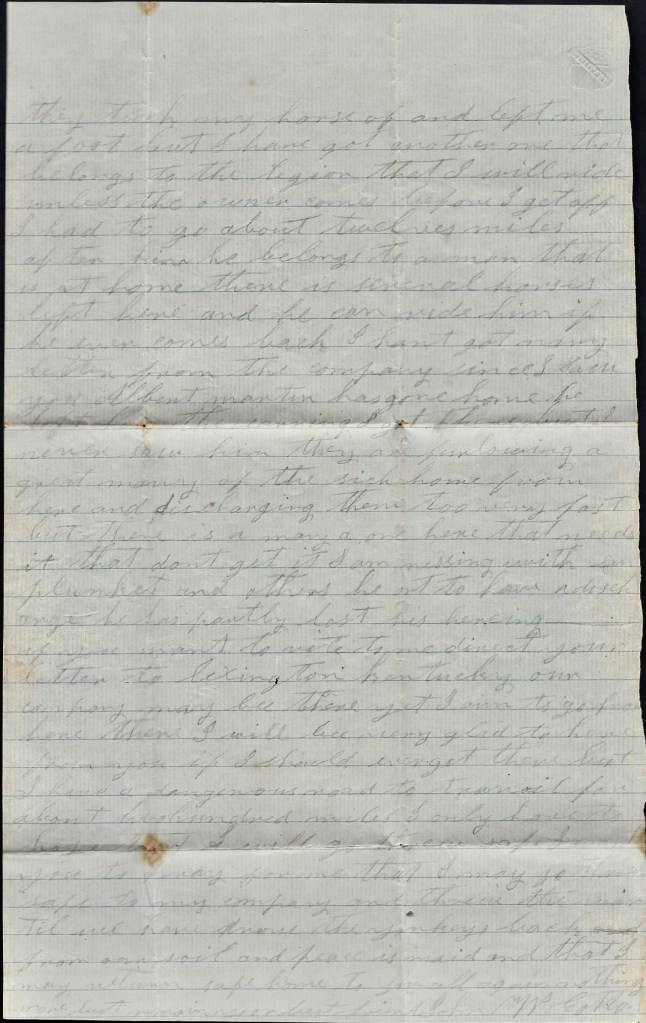 they tuck my horse of and left me
a foot but I have got another one that
belongs to the legion that I will ride
unless the owner comes before I get off
I had to go about twelves miles
after him he belongs to a man that
is at home there is several horsis
left here and he can ride him if
he ever comes back I hant got many
letter from the company since I saw
you Albert martin has gone home he
left here the morning I got
never saw him they are furlowing a
great manny of the sick home from
here and discharging them too very fast
but there is a many a one here that needs
it that dont get it I am messing with
plunket and others he ort to have a disch
arge he has partly lost his hereing
if you want to rite to me direct your
letter to lexington kentucky our
company may bee there yet I am to go from
here there I will bee very glad to here
from you if I should ever get there but
I have a dangerous road to travil for
about two hundred miles I only have to
hope that I will go threw safe I
you to pray for me that I may go threw
safe to my company and threw the war
til we have drove the yankeys back
from our soil and peace is maid and that I
may return safe home to you all again nothing
more but remain your best friend